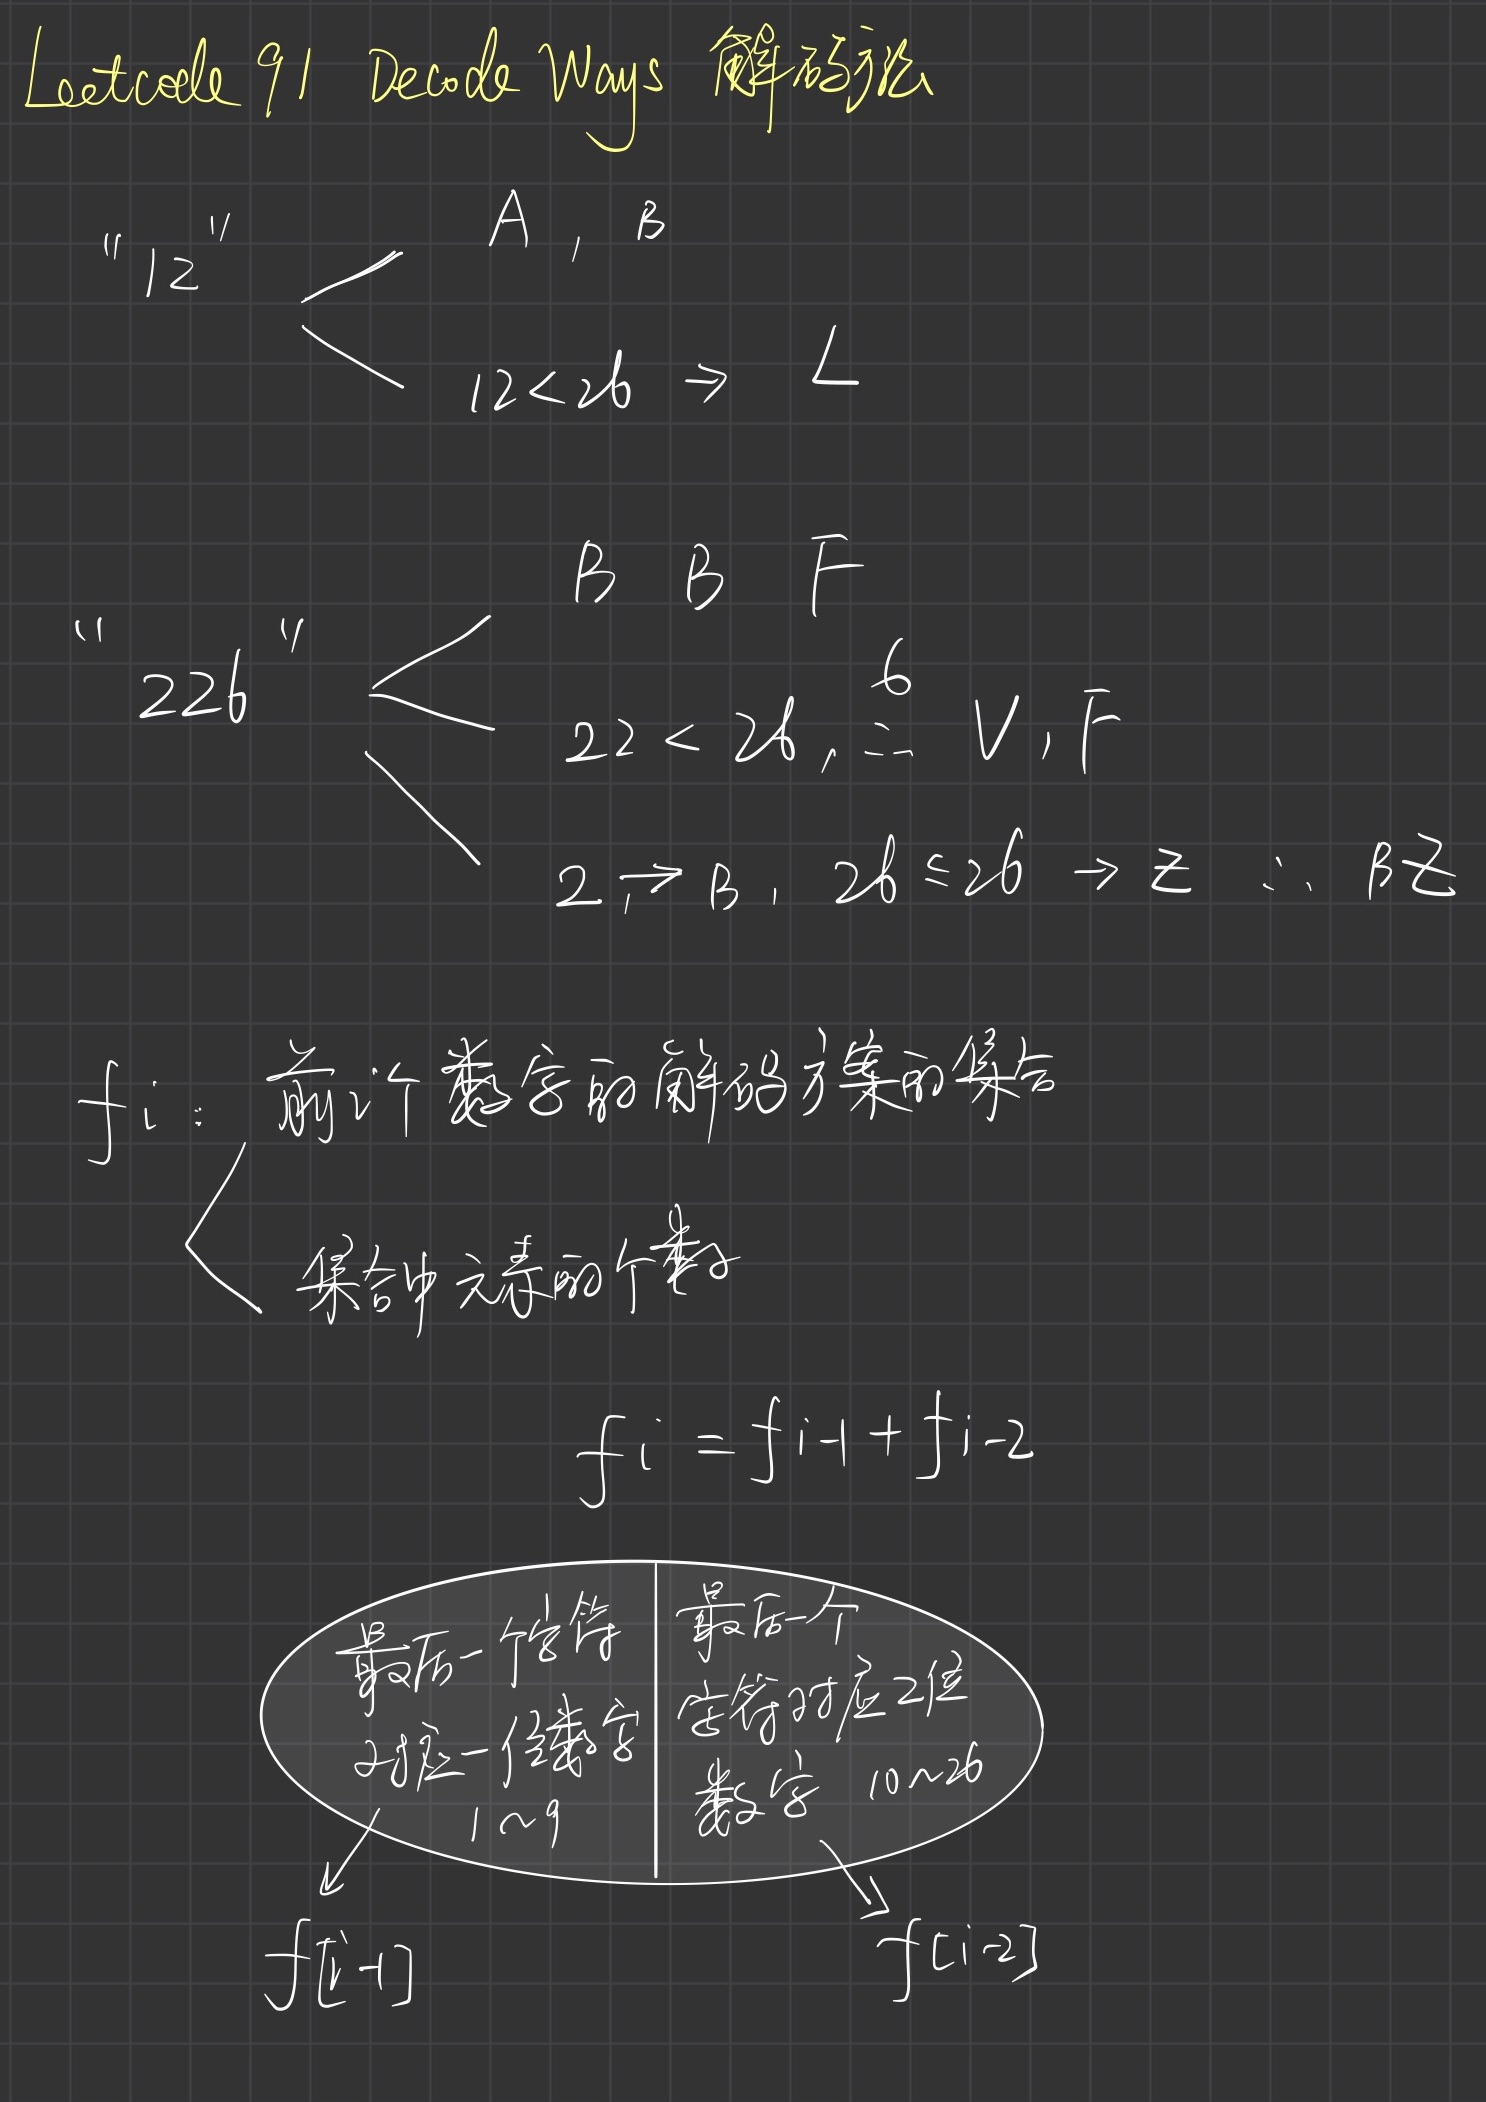 Leetcode 91 Decode Ways 解码方法
"12"
A, B
12<26 → L
"226"
B B F
6
22<26, ∴ V, F
2, → B, 26≤26 → Z ∴ BZ
fi: 前i个数字的解码方案的集合
集合中元素的个数
fi = fi-1 + fi-2
最后一个字符
对应一位数字
1~9
最后一个
字符对应2位
数字 10~26
f[i-1]
f[i-2]